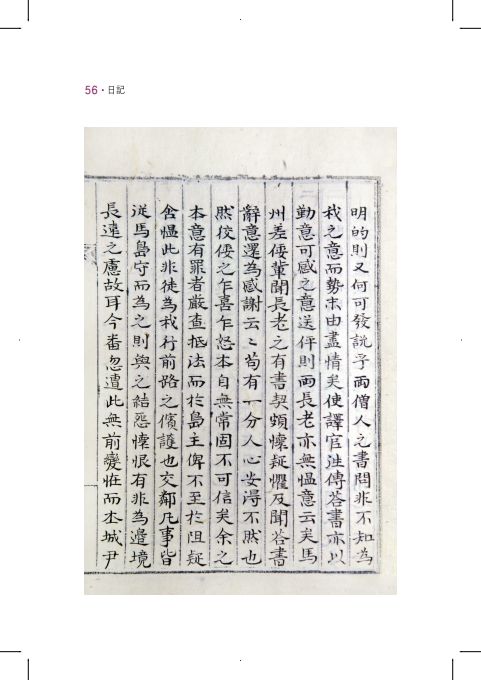 56 · 日記
明的則又何可發說乎兩僧人之書問非不知為
我之意而勢末由盡情矣使譯官注傳答書亦以
勤意可感之意送伻則兩長老亦無慍意云矣馬
州差倭輩聞長老之有書契頗懷疑懼及聞答書
辭意還為感謝云〻苟有一分人心安得不然也
然狡倭之乍喜乍怒本自無常固不可信矣余之
本意有罪者嚴查抵法而於島主俾不至於阻疑
含慍此非徒為我行前路之儐護也交鄰凡事皆
從馬島守而為之則與之結怨懷恨有非為邊境
長遠之慮故耳今番忽遭此無前變恠而本城尹